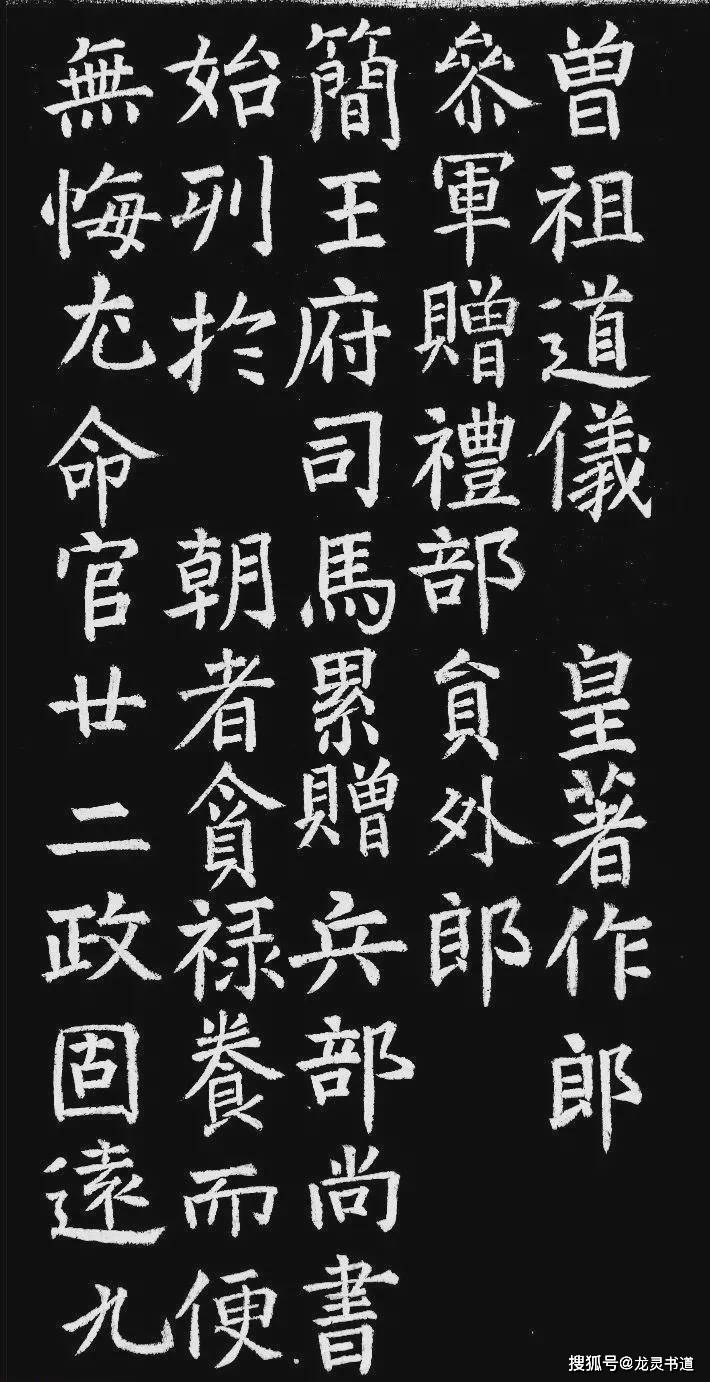 曽祖道儀 皇著作郎
叅軍贈禮部貟外郎
簡王府司馬累贈兵部尚書
始列於 朝者貪禄養而便
無悔尤命官廿二政固遠九
搜狐号@龙灵书道